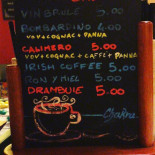 VIN BRULÈ 5.00
BOMBARDINO 5.00
VOV+COGNAC+PANNA
CALIMERO 5.00
VOV+COGNAC+CAFFÈ+PANNA
IRISH COFFEE 5.00
RON Y MIEL 5.00
DRAMBUIE 5.00